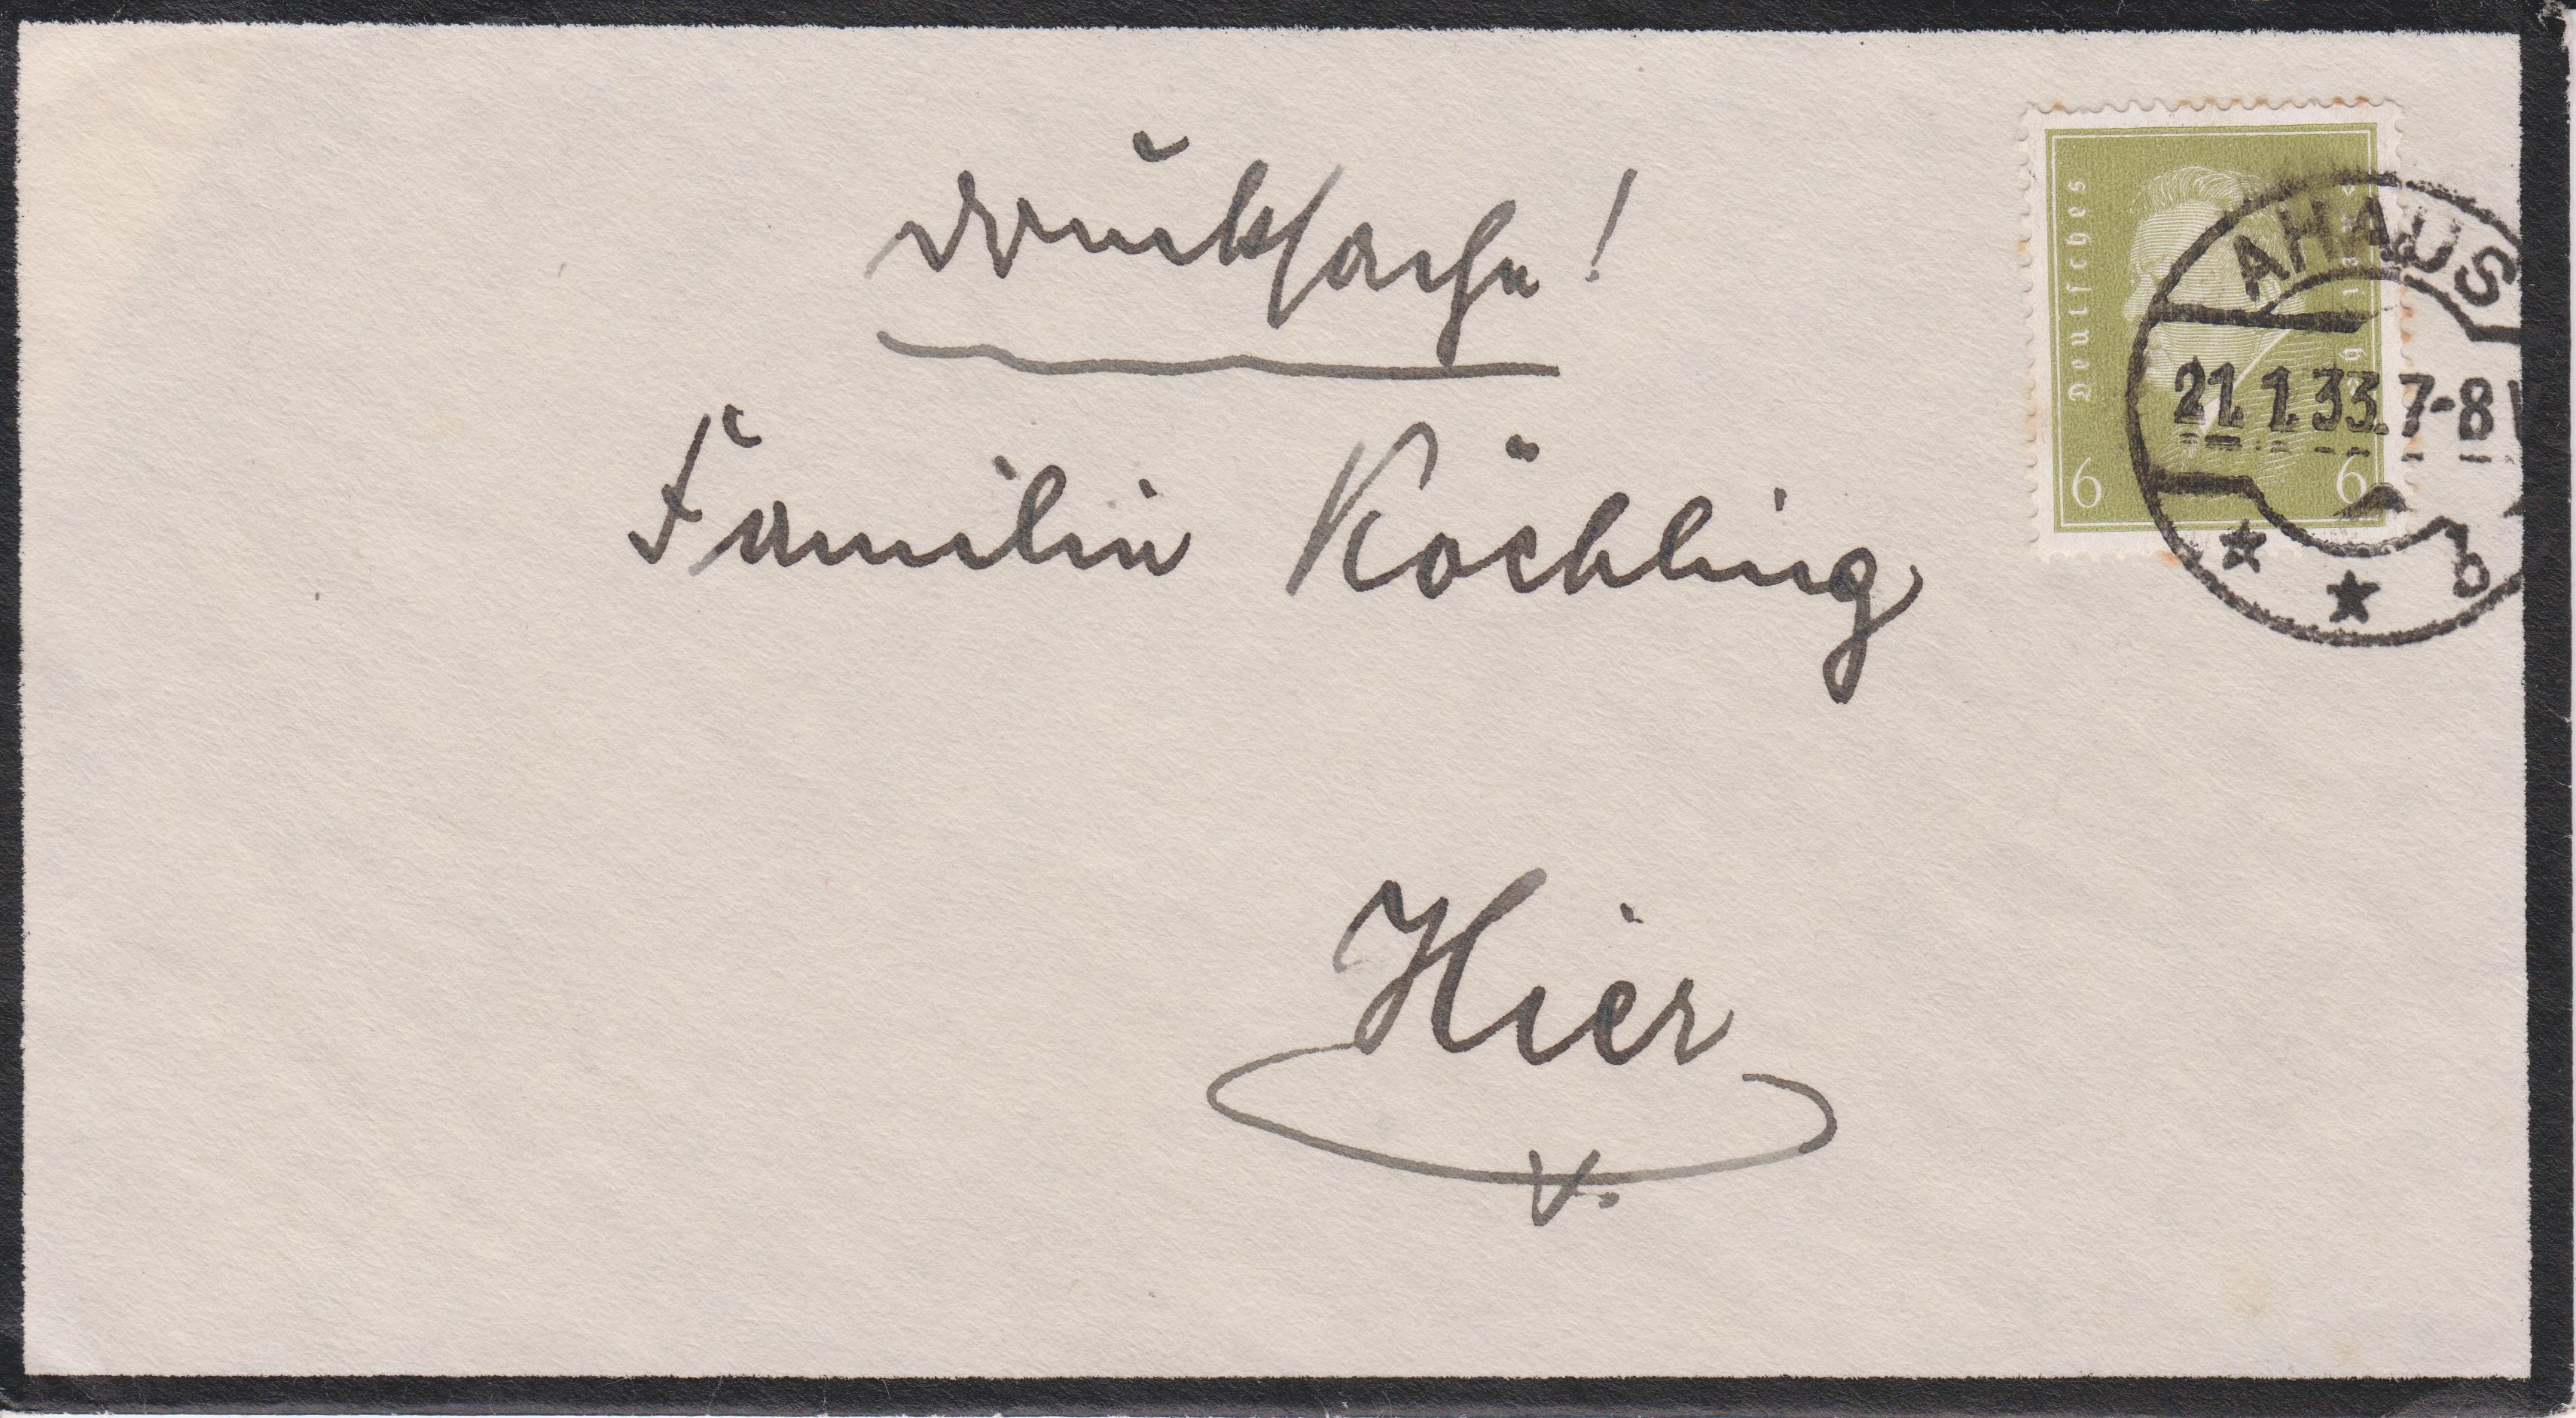 Drucksache!
Deutsches Reich
AHAUS
21.1.33. 7-8V
6 6
b
Familie Köchling
Hier
v.